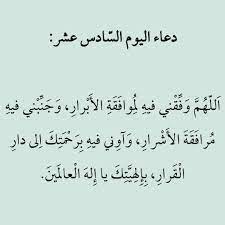 دعاء اليوم السّادس عشر:
اَللّهُمَّ وَفِّقْني فيهِ لِمُوافَقَةِ الْأَبْرارِ، وَجَنِّبْني فيهِ
مُرافَقَةَ الْأَشْرارِ، وَآوِني فيهِ بِرَحْمَتِكَ اِلى دارِ
الْقَرارِ، بِاِلهِيَّتِكَ يا اِلهَ الْعالَمينَ.